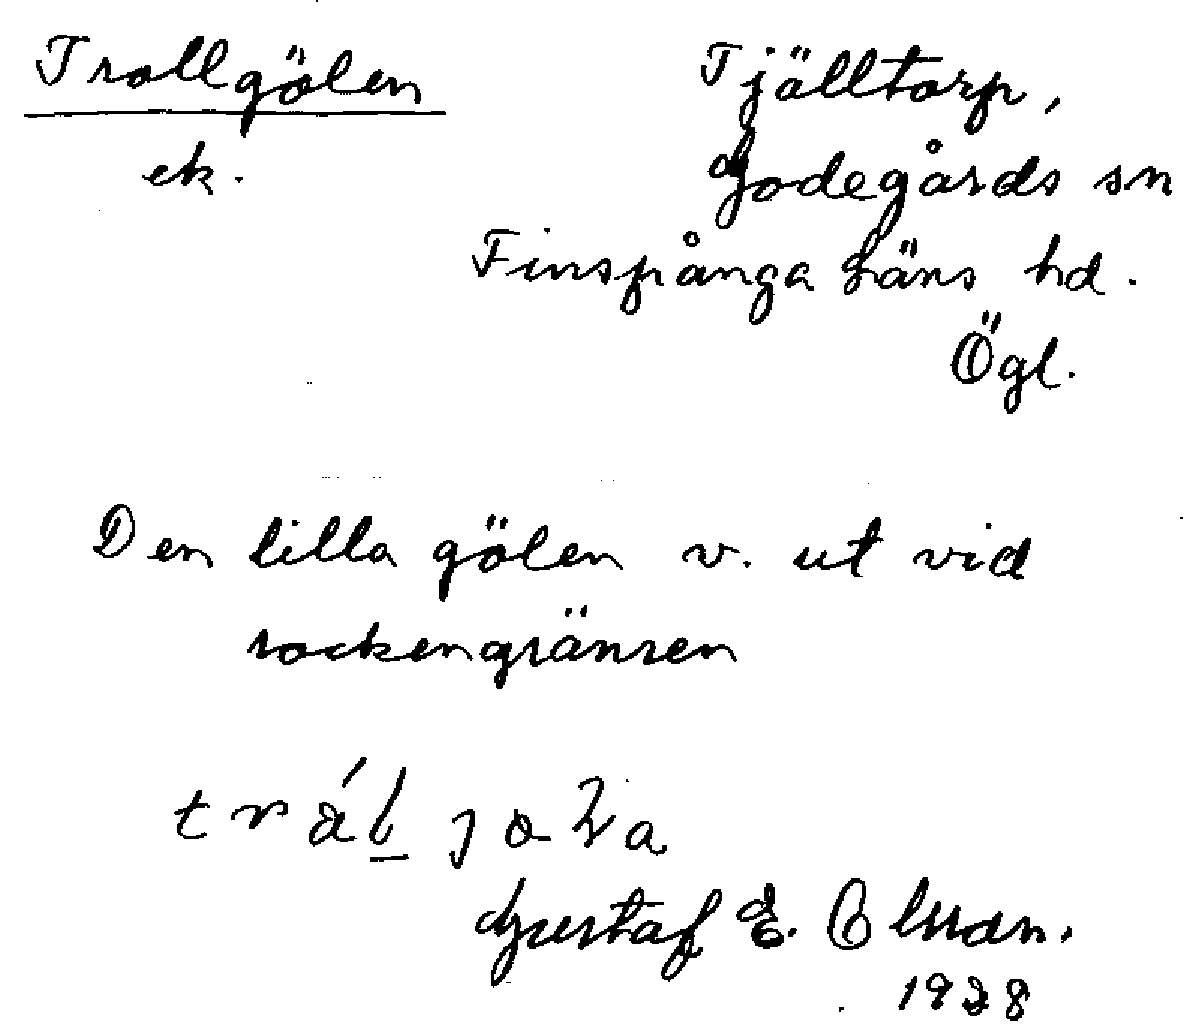 Trollgölen
ek.
Tjälltorp,
Godegårds sn
Finspånga läns hd.
Ögl.
Den lilla gölen v. ut vid
sockengränsen
Gustaf E. Olsson.
1928